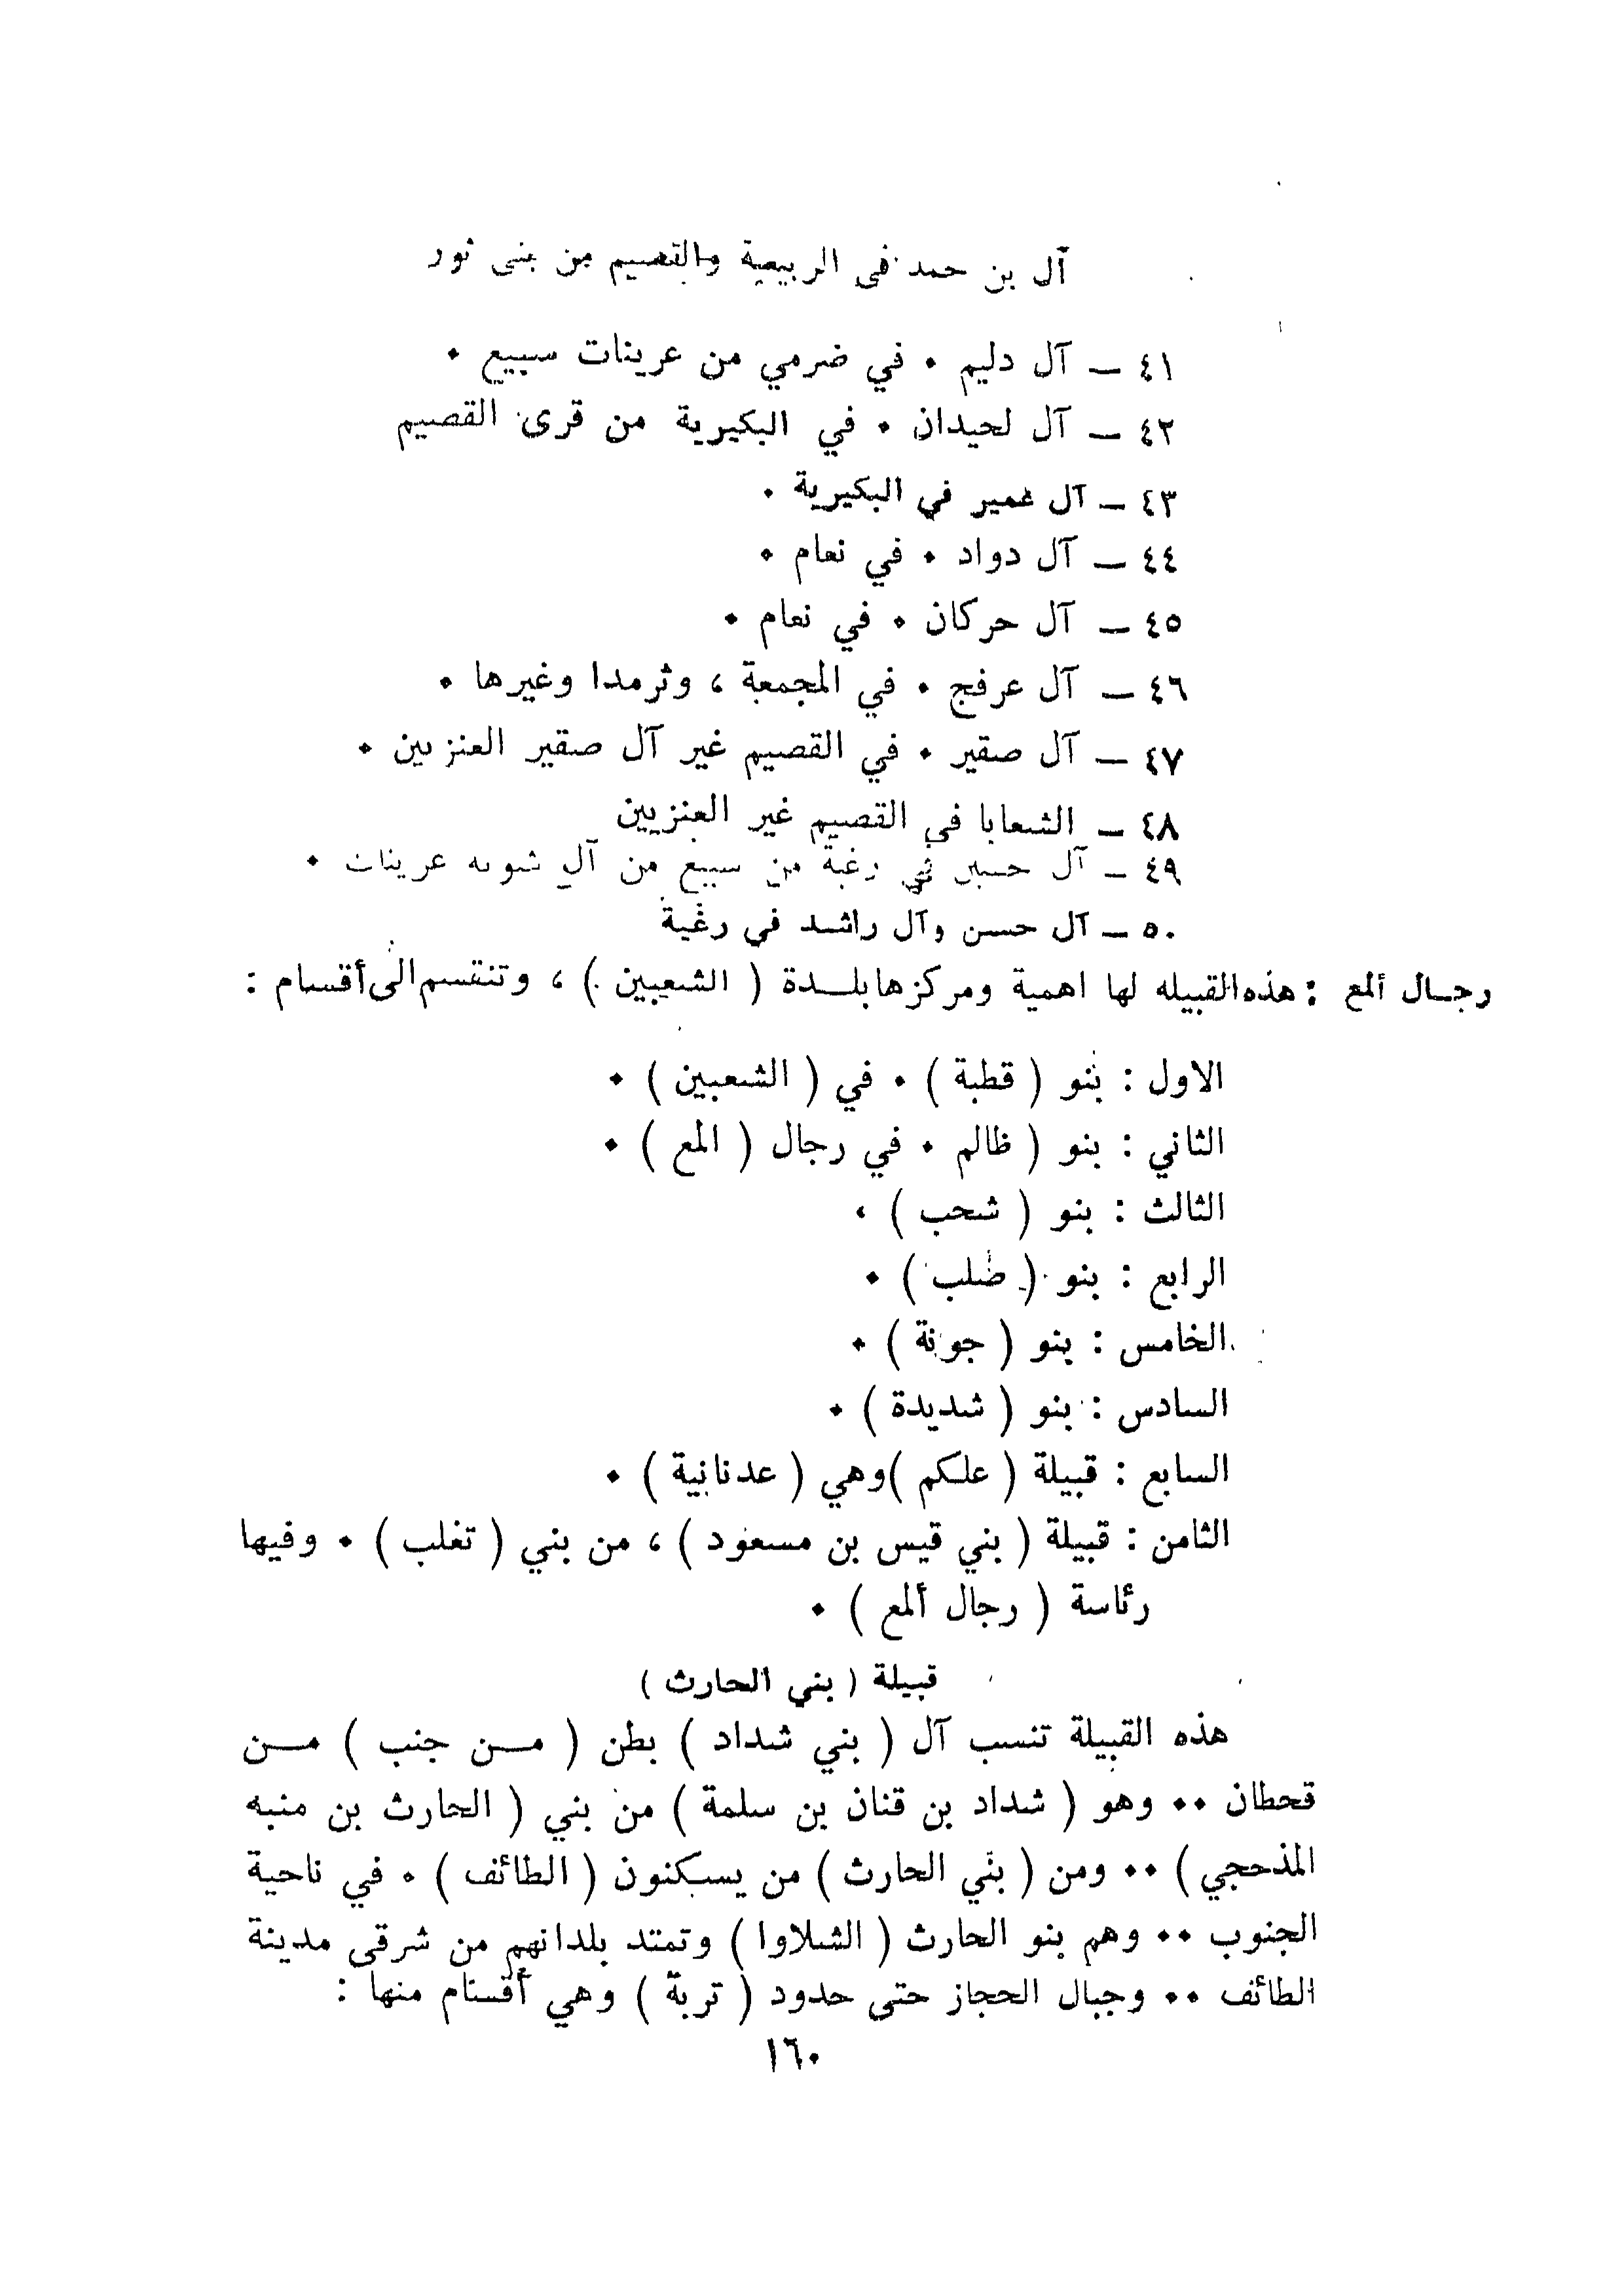 آل بن حمد في الربيعية والقصيم من بني ثور
٤١ — آل دليم . في ضرمي من عرينات سبيع .
٤٢ — آل لحيدان . في البكيرية من قرى القصيم
٤٣ — آل عمير في البكيرية .
٤٤ — آل دواد . في نعام .
٤٥ — آل حركان . في نعام .
٤٦ — آل عرفج . في المجمعة ، وثرمدا وغيرها .
٤٧ — آل صقير . في القصيم غير آل صقير العنزيين .
٤٨ — الشعابا في القصيم غير العنزيين
٤٩ — آل حسين في رغبة من سبيع من آل عرينات .
٥٠ — آل حسن وآل راشد في رغبة
رجال ألمع : هذه القبيله لها اهمية ومركزها بلدة ( الشعبين ) ، وتنقسم الى أقسام :
الاول : بنو ( قطبة ) . في ( الشعبين ) .
الثاني : بنو ( ظالم . في رجال ( المع ) .
الثالث : بنو ( شحب ) ،
الرابع : بنو ( صلب ) .
الخامس : بنو ( جونة ) .
السادس : بنو ( شديدة ) .
السابع : قبيلة ( علكم ) وهي ( عدنانية ) .
الثامن : قبيلة ( بني قيس بن مسعود ) ، من بني ( تغلب ) . وفيها
رئاسة ( رجال ألمع ) .
قبيلة ( بني الحارث )
هذه القبيلة تنسب آل ( بني شداد ) بطن ( من جنب ) من
قحطان .. وهو ( شداد بن قنان بن سلمة ) من بني ( الحارث بن منبه
المذحجي ) .. ومن ( بني الحارث ) من يسكنون ( الطائف ) . في ناحية
الجنوب .. وهم بنو الحارث ( الشلاوا ) وتمتد بلدانهم من شرقي مدينة
الطائف .. وجبال الحجاز حتى حدود ( تربة ) وهي أقسام منها :
١٦٠